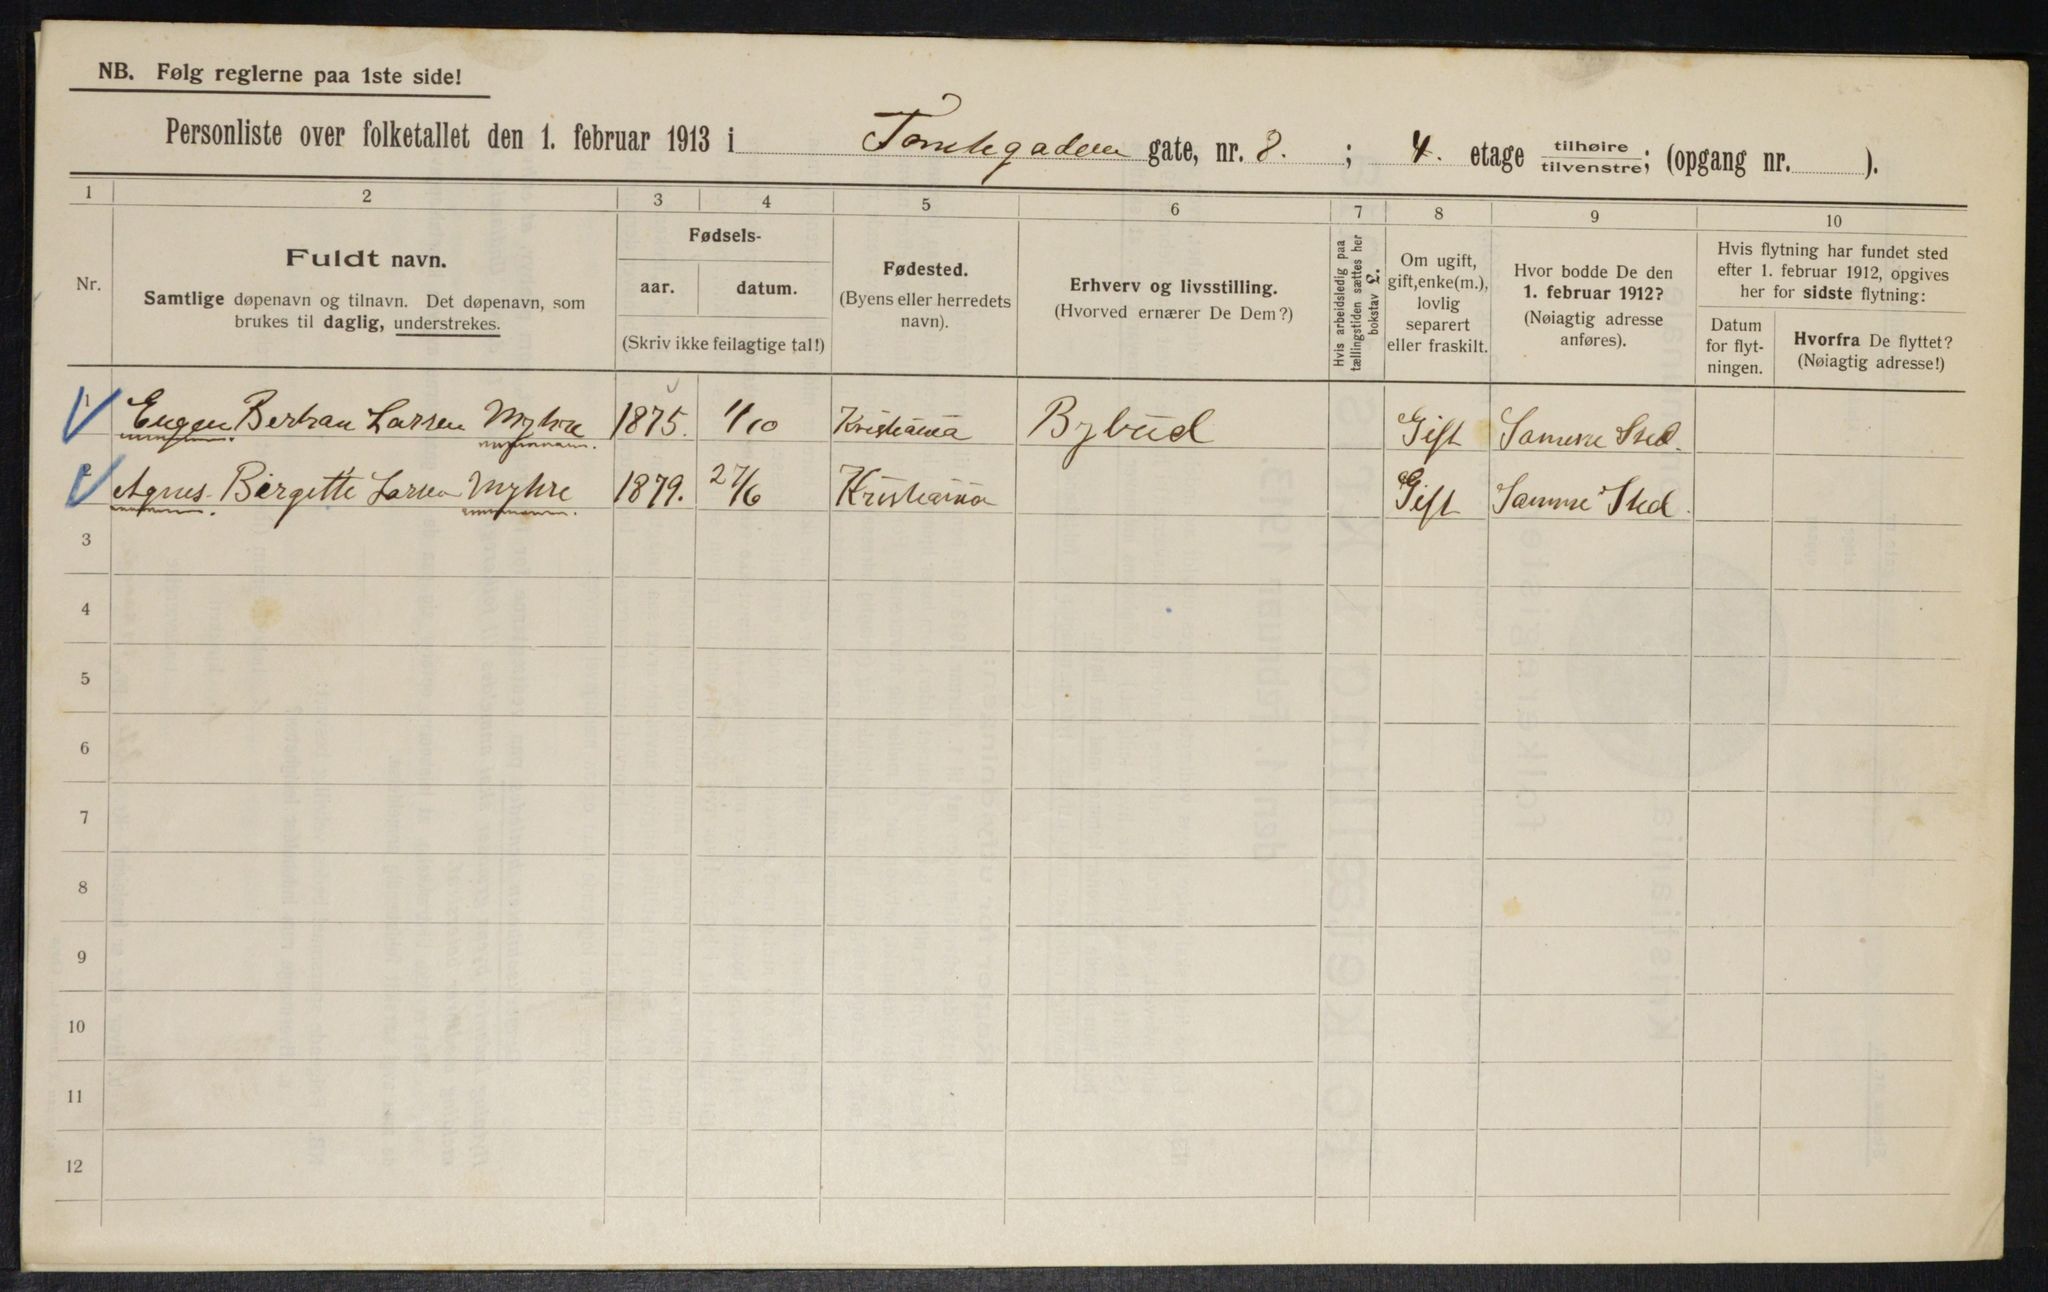 NB. Følg reglerne paa 1ste side!
Personliste over folketallet den 1. februar 1913 i Tomtegaden gate, nr. 8. ; 4. etage tilhøire tilvenstre; (opgang nr. ).
1 2 3 4 5 6 7 8 9 10
Nr.
Fuldt navn.
Samtlige døpenavn og tilnavn. Det døpenavn, som
brukes til daglig, understrekes.
Fødsels-
aar. datum.
(Skriv ikke feilagtige tal!)
Fødested.
(Byens eller herredets
navn).
Erhverv og livsstilling.
(Hvorved ernærer De Dem?)
Hvis arbeidsledig paa
tællingstiden sættes her
bokstav L.
Om ugift,
gift, enke(m.),
lovlig
separert
eller fraskilt.
Hvor bodde De den
1. februar 1912?
(Nøiagtig adresse
anføres).
Hvis flytning har fundet sted
efter 1. februar 1912, opgives
her for sidste flytning:
Datum
for flyt-
ningen.
Hvorfra De flyttet?
(Nøiagtig adresse!)
1 Eugen Larsen Myhre 1875. 1/10 Kristiania Bybud Gift Samme Sted.
2 Agnes Birgitte Larsen Myhre 1879. 27/6 Kristiania Gift Samme Sted.
3
4
5
6
7
8
9
10
11
12